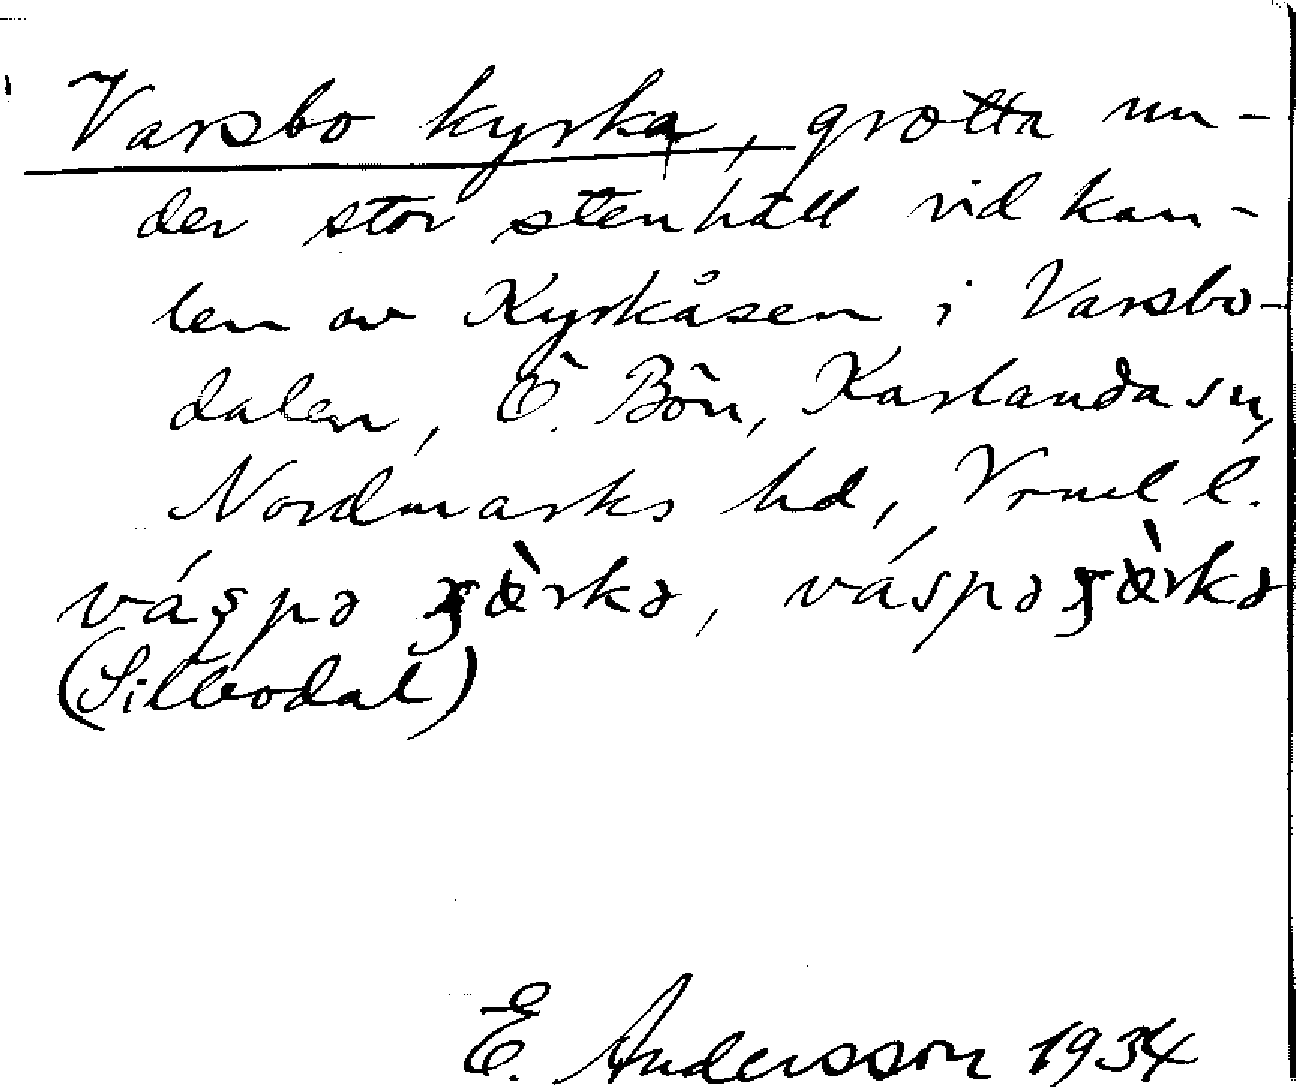 Varsbo kyrka, grotta un-
der stor stenhäll vid kan-
ten av Kyrkåsen i Varsbo-
dalen, Ö. Bön, Karlanda sn,
Nordmarks hd, Vrml l.
(Sillbodal)
E. Andersson 1934